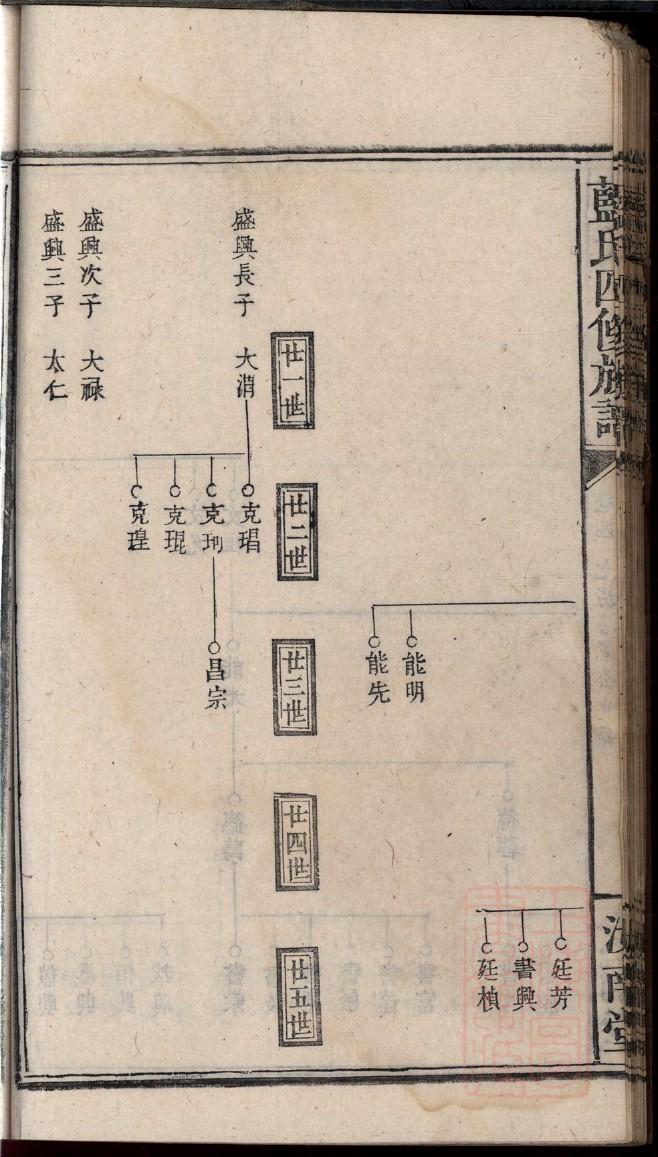 藍氏四修族譜
汝南堂
廷芳
書興
廷楨
能明
能先
廿一世
廿二世
廿三世
廿四世
廿五世
盛興長子 大渭
克琩
克珂
克琨
克瑝
昌宗
盛興次子 大祿
盛興三子 太仁